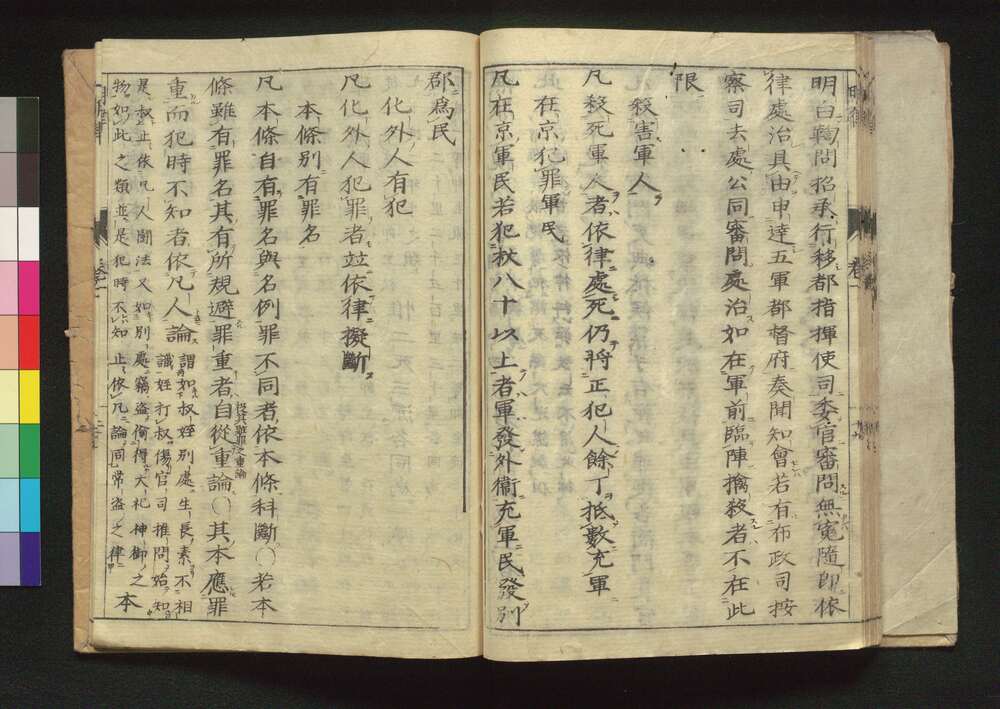 明白鞫問招承行移都指揮使司委官審問無寃隨即依
律處治具由申達五軍都督府奏聞知會若有布政司按
察司去處公同審問處治如在軍前臨陣擒殺者不在此
限
殺害軍人
凡殺死軍人者依律處死仍將正犯人餘丁抵數充軍
在京犯罪軍民
凡在京軍民若犯杖八十以上者軍發外衞充軍民發別
郡為民
化外人有犯
凡化外人犯罪者竝依律擬斷
本條別有罪名
凡本條自有罪名與名例罪不同者依本條科斷〇若本
條雖有罪名其有所規避罪重者自從重論〇其本應罪
重而犯時不知者依凡人論
謂如叔姪別處生長素不相
識姪打叔傷官司推問始知
是叔止依凡人鬪法又如別處竊盗偷得大祀神御之
物如此之類並是犯時不知止依凡論同常盗之律
本